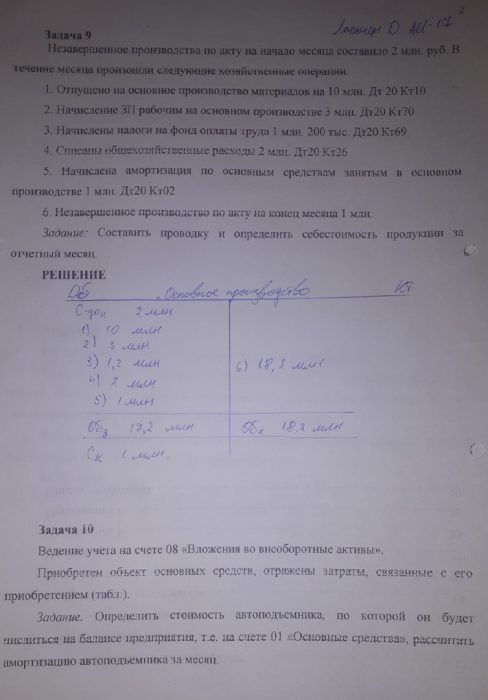 2
Д АИ-17
Задача 9
Незавершенное производства по акту на начало месяца составило 2 млн. руб. В
течение месяца произошли следующие хозяйственные операции.
1. Отпущено на основное производство материалов на 10 млн. Дт 20 Кт10
2. Начисление ЗП рабочим на основном производстве 3 млн. Дт20 Кт70
3. Начислены налоги на фонд оплаты труда 1 млн. 200 тыс. Дт20 Кт69
4. Списаны общехозяйственные расходы 2 млн. Дт20 Кт26
5. Начислена амортизация по основным средствам занятым в основном
производстве 1 млн. Дт20 Кт02
6. Незавершенное производство по акту на конец месяца 1 млн.
Задание: Составить проводку и определить себестоимость продукции за
отчетный месяц.
РЕШЕНИЕ
Дб Основное производство Кт
2 млн
1) 10 млн
2) 3 млн
3) 1,2 млн 6) 18,2 млн
4) 2 млн
5) 1 млн
Обд 17,2 млн Обк 18,2 млн
Ск 1 млн.
Задача 10
Ведение учета на счете 08 «Вложения во внеоборотные активы».
Приобретен объект основных средств, отражены затраты, связанные с его
приобретением (табл.).
Задание. Определить стоимость автоподъемника, по которой он будет
числиться на балансе предприятия, т.е. на счете 01 «Основные средства», рассчитать
амортизацию автоподъемника за месяц.